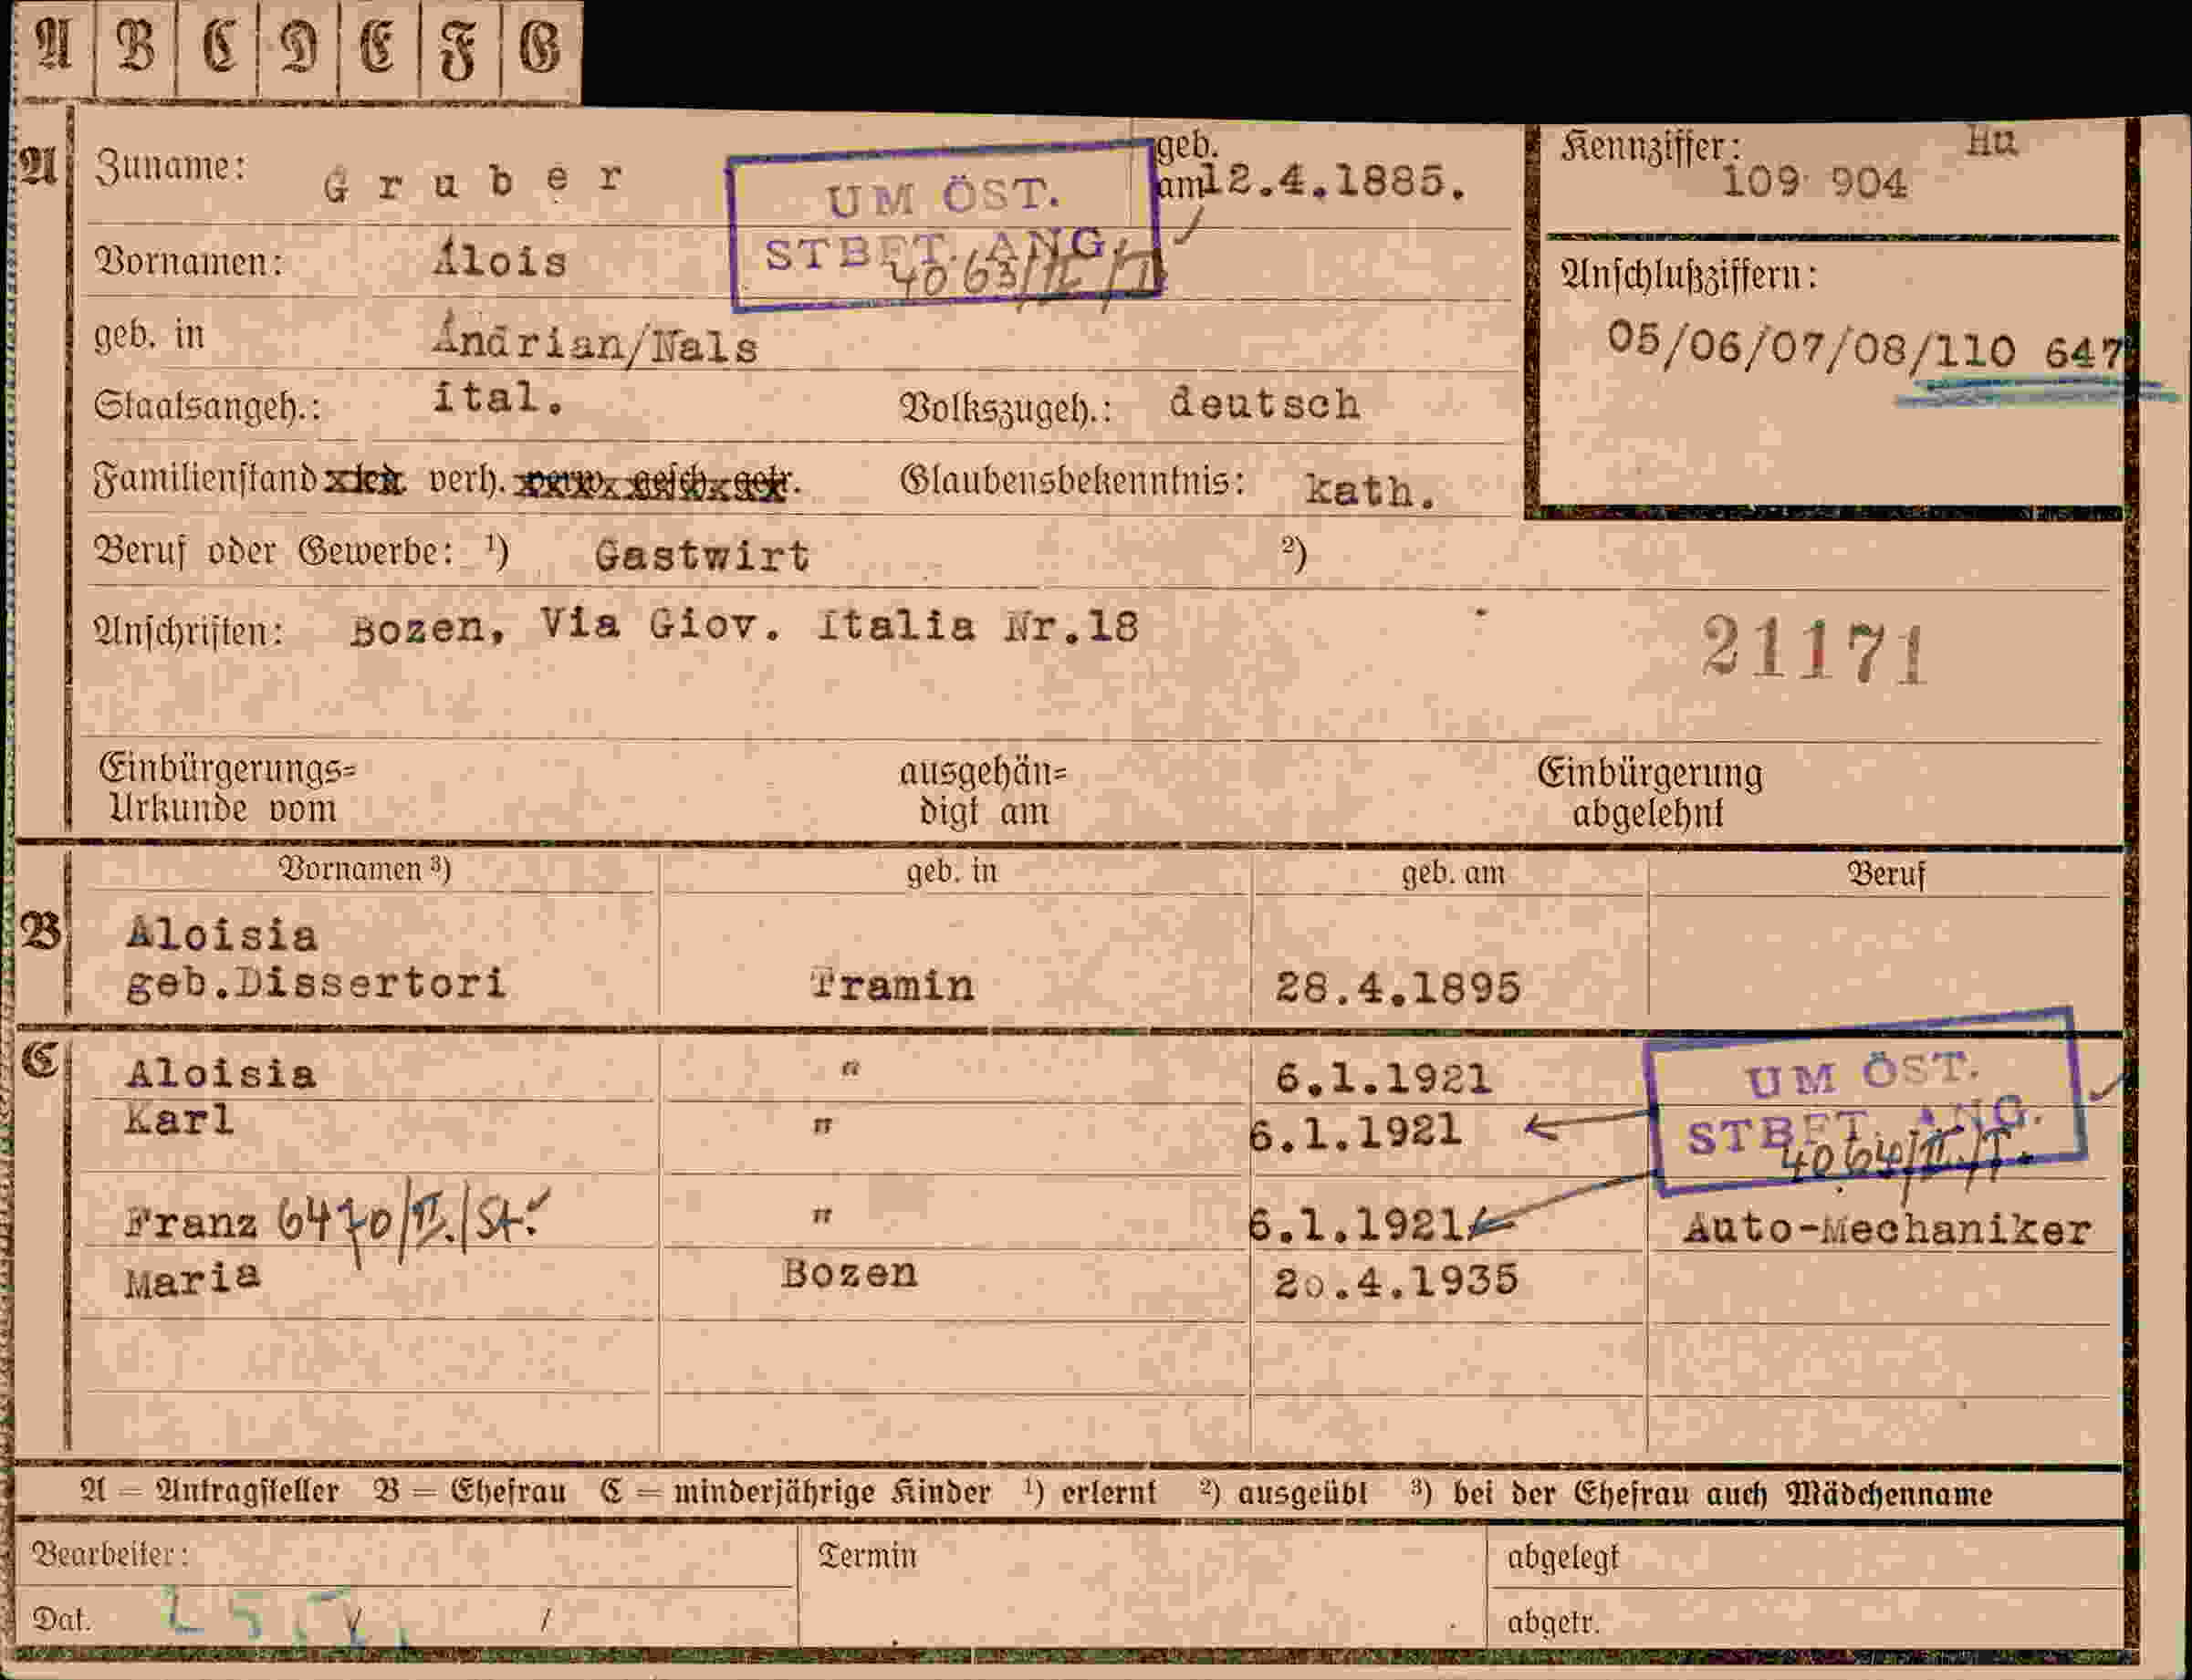 A B C D E F G
A Zuname: Gruber geb. am 12.4.1885.
UM ÖST.
STBFT. ANG.
4063/II/T
Kennziffer: Hu
109 904
Vornamen: Alois
Anschlußziffern:
05/06/07/08/110 647
geb. in Andrian/Nals
Staatsangeh.: ital. Volkszugeh.: deutsch
Familienstand led. verh. verw. gesch. getr. Glaubensbekenntnis: kath.
Beruf oder Gewerbe: ¹) Gastwirt ²)
Anschriften: Bozen, Via Giov. Italia Nr.18
21171
Einbürgerungs= ausgehän= Einbürgerung
Urkunde vom digt am abgelehnt
Vornamen ³) geb. in geb. am Beruf
B Aloisia
geb.Dissertori Tramin 28.4.1895
C Aloisia " 6.1.1921
UM ÖST.
STBFT. ANG.
4064/II/T.
Karl " 6.1.1921
Franz 6470/II./St. " 6.1.1921 Auto-Mechaniker
Maria Bozen 20.4.1935
A = Antragsteller B = Ehefrau C = minderjährige Kinder ¹) erlernt ²) ausgeübt ³) bei der Ehefrau auch Mädchenname
Bearbeiter: Termin abgelegt
Dat. / abgetr.